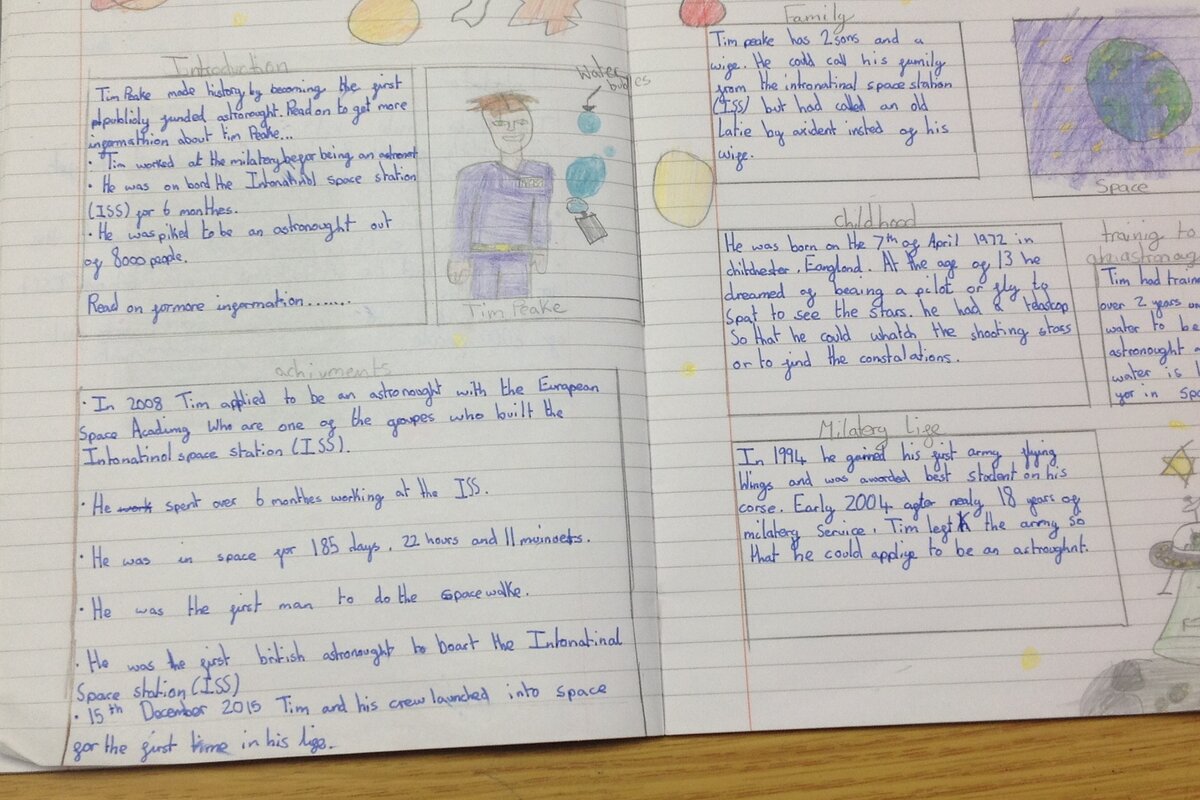 Introduction
Tim Peake made history by becoming the first
publicly funded astronought. Read on to get more
ingormathion about Tim Peake...
• Tim worked at the milatery begor being an astronot
• He was on bord the Intonatinbl space station
(ISS) gor 6 monthes.
• He was piked to be an astronought out
og 8000 people.
Read on gormore ingormation........
Water
bubbles
Tim Peake
achivments
• In 2008 Tim applied to be an astronought with the European
Space Acadimg Who are one og the groupes who built the
Intonatinol space station (ISS).
• He work spent over 6 monthes working at the ISS.
• He was in space gor 185 days, 22 hours and 11 muinoets.
• He was the girst man to do the Space walke.
• He was the girst british astronought to boart the Intonatinal
Space station (ISS)
• 15th December 2015 Tim and his crew launched into space
gor the girst time in his lige.
Family
Tim peake has 2 sons and a
wige. He could call his gumily
grom the intonatinal space station
(ISS) but had called an old
Latie by axident insted og his
wige.
Space
childhood
He was born on the 7th og April 1972 in
chitchester, Eangland. At the age og 13 he
dreamed og beaing a pilot or gly to
Spat to see the stars. he had a telascop
So that he could whatch the shooting stass
or to gind the constalations.
trainig to
Tim had train
over 2 years
water to be
astronought
water is
gor in Spa
Milatery Lige
In 1994 he gained his girst army glying
Wings and was awarded best student on his
corse. Early 2004 agter nealy 18 years og
milatery Service, Tim legt the army so
that he could appliye to be an astroughnt.